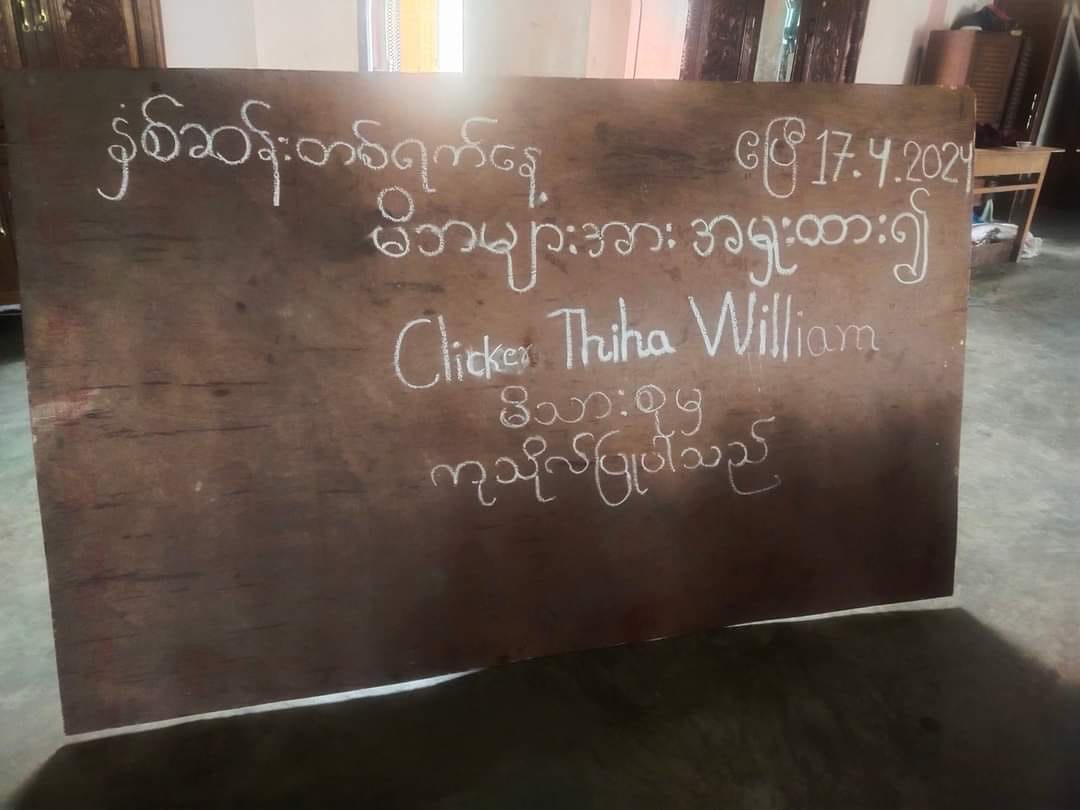 နှစ်ဆန်းတစ်ရက်နေ့ ဧပြီ 17.4.2024
မိဘများအား အမှူးထား၍
Clicker Thiha William
မိသားစုမှ
ကုသိုလ်ပြုပါသည်